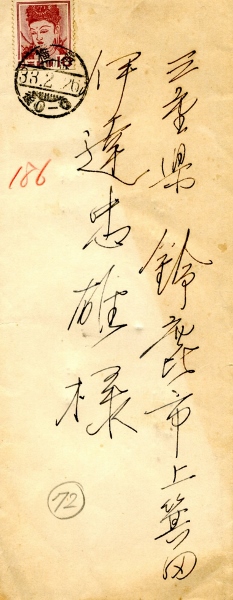 三重県 鈴鹿市上箕田
伊達忠雄様
33.2.26
186
72